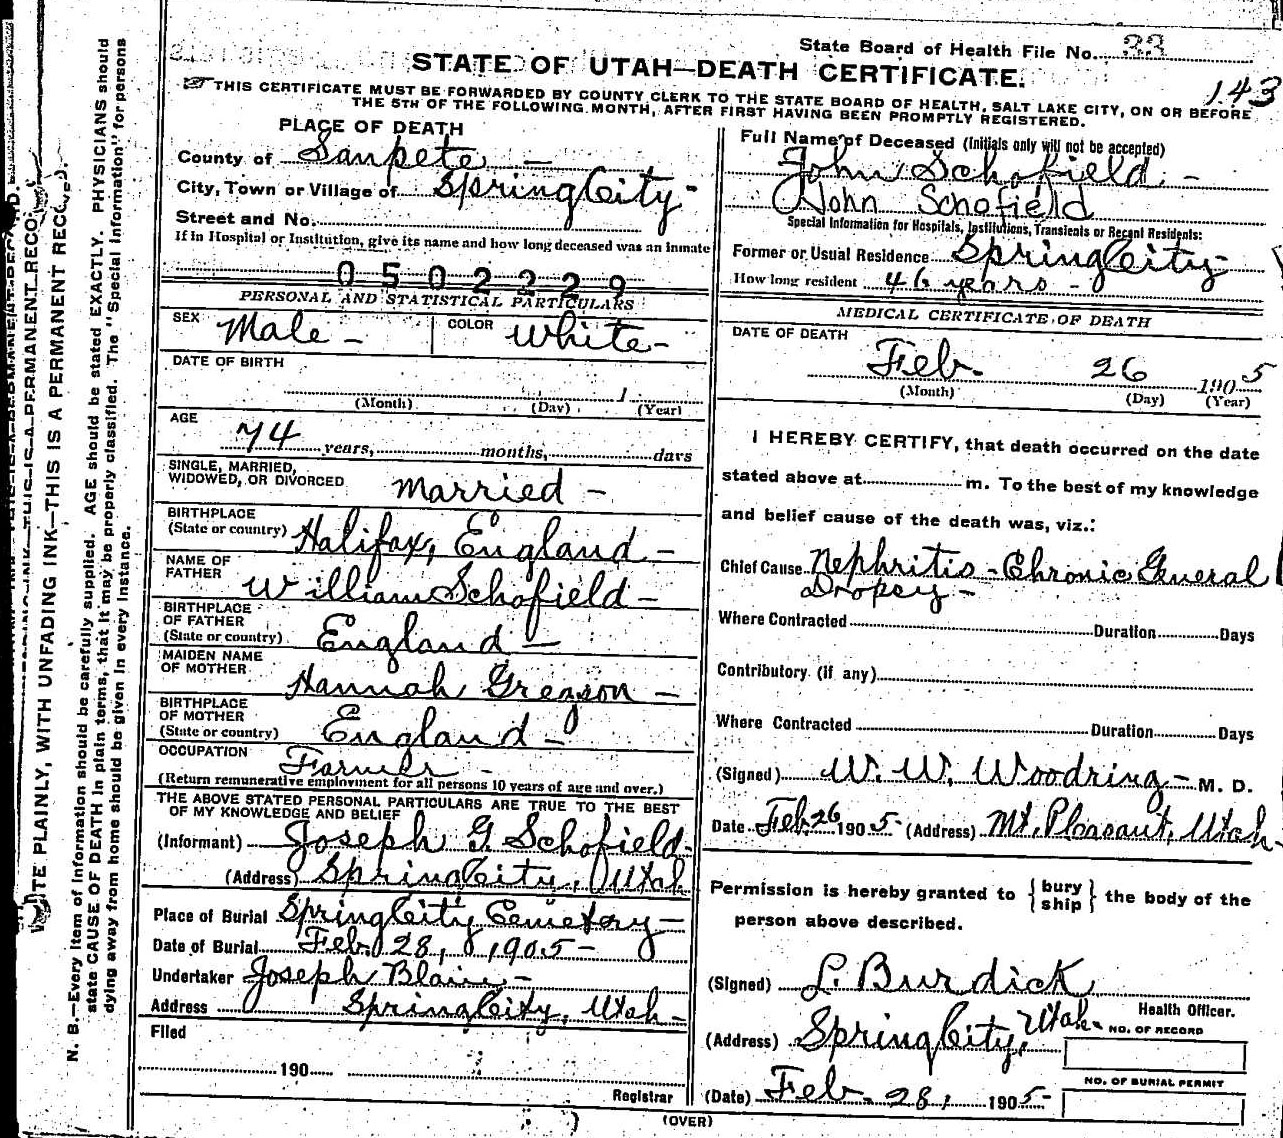 State Board of Health File No. 33
143
STATE OF UTAH—DEATH CERTIFICATE.
THIS CERTIFICATE MUST BE FORWARDED BY COUNTY CLERK TO THE STATE BOARD OF HEALTH, SALT LAKE CITY, ON OR BEFORE
THE 5TH OF THE FOLLOWING MONTH, AFTER FIRST HAVING BEEN PROMPTLY REGISTERED.
PLACE OF DEATH
County of Sanpete —
City, Town or Village of Spring City -
Street and No.
If in Hospital or Institution, give its name and how long deceased was an inmate
0502229
PERSONAL AND STATISTICAL PARTICULARS
SEX Male — COLOR White —
DATE OF BIRTH
1
(Month) (Day) (Year)
AGE
74 years, months, days
SINGLE, MARRIED,
WIDOWED, OR DIVORCED Married —
BIRTHPLACE
(State or country) Halifax, England —
NAME OF
FATHER William Schofield —
BIRTHPLACE
OF FATHER
(State or country) England —
MAIDEN NAME
OF MOTHER Hannah Greason —
BIRTHPLACE
OF MOTHER
(State or country) England —
OCCUPATION Farmer -
(Return remunerative employment for all persons 10 years of age and over.)
THE ABOVE STATED PERSONAL PARTICULARS ARE TRUE TO THE BEST
OF MY KNOWLEDGE AND BELIEF
(Informant) Joseph G. Schofield -
(Address) Spring City, Utah
Place of Burial Spring City Cemetery —
Date of Burial Feb. 28, 1905 -
Undertaker Joseph Blain -
Address Spring City, Utah -
Filed
190
Registrar
Full Name of Deceased (Initials only will not be accepted)
John Schofield -
John Schofield
Special Information for Hospitals, Institutions, Transients or Recent Residents:
Former or Usual Residence Spring City -
How long resident 46 years -
MEDICAL CERTIFICATE OF DEATH
DATE OF DEATH
Feb. 26 1905
(Month) (Day) (Year)
I HEREBY CERTIFY, that death occurred on the date
stated above at m. To the best of my knowledge
and belief cause of the death was, viz.:
Chief Cause Nephritis - Chronic General
Dropsy -
Where Contracted Duration Days
Contributory (if any)
Where Contracted Duration Days
(Signed) W. W. Woodring - M. D.
Date Feb. 26 1905 - (Address) Mt. Pleasant, Utah -
Permission is hereby granted to { bury
ship } the body of the
person above described.
(Signed) L. Burdick
Health Officer.
(Address) Spring City, Utah -
NO. OF RECORD
NO. OF BURIAL PERMIT
(Date) Feb. 28, 1905 -
(OVER)
WRITE PLAINLY, WITH UNFADING INK—THIS IS A PERMANENT RECORD.
N. B.—Every item of information should be carefully supplied. AGE should be stated EXACTLY. PHYSICIANS should
state CAUSE OF DEATH in plain terms, that it may be properly classified. The "Special Information" for persons
dying away from home should be given in every instance.